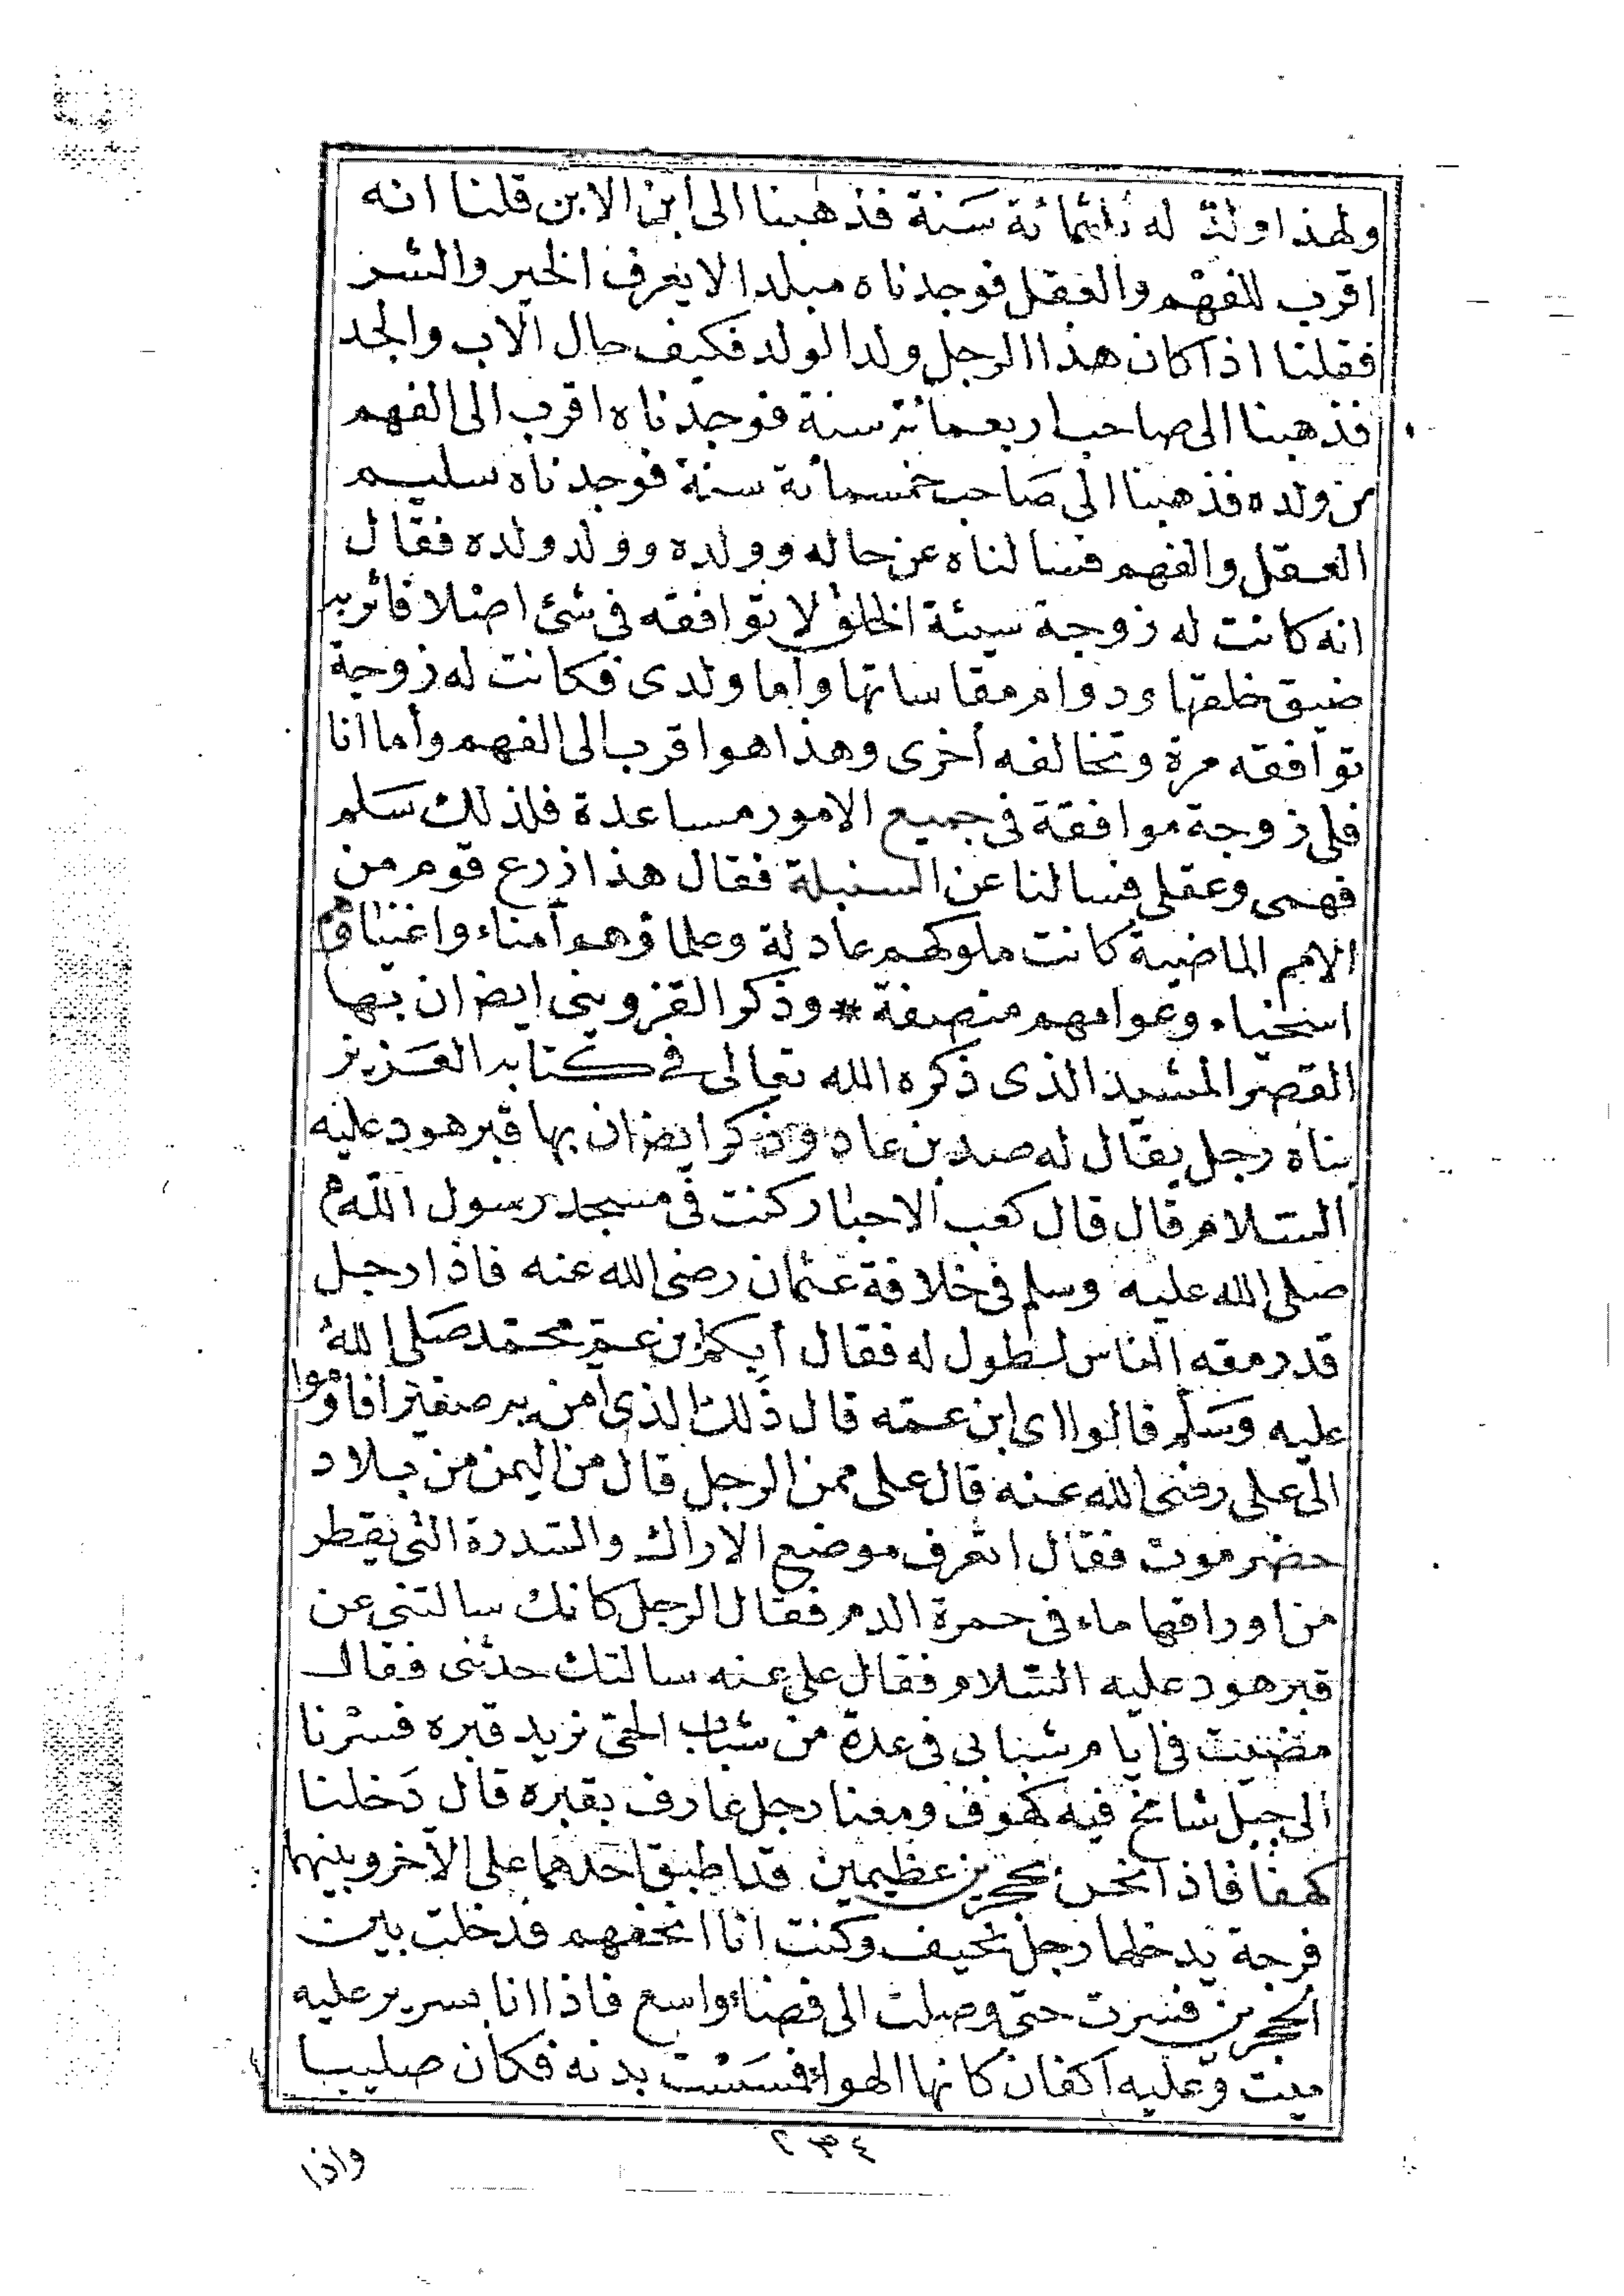 ولهذا ولد له ثلثمائة سنة فذهبنا الى ابن الابن قلنا انه
اقرب للفهم والعقل فوجدناه مبلدا لا يعرف الخير والشر
فقلنا اذا كان هذا الرجل ولد الولد فكيف حال الاب والجد
فذهبنا الى صاحب اربعمائة سنة فوجدناه اقرب الى الفهم
من ولده فذهبنا الى صاحب خمسمائة سنة فوجدناه سليم
العقل والفهم فسالناه عن حاله وولده وولد ولده فقال
انه كانت له زوجة سيئة الخلق لا توافقه فى شئ اصلا فاثر به
ضيق خلقها ودوام مقاساتها وأما ولدى فكانت له زوجة
توافقه مرة وتخالفه أخرى وهذا هو اقرب الى الفهم وأما انا
فلى زوجة موافقة فى جميع الامور مساعدة فلذلك سلم
فهمى وعقلى فسالنا عن السنبلة فقال هذا زرع قوم من
الامم الماضية كانت ملوكهم عادلة وعلماؤهم أمناء واغنياؤهم
اسخياء وعوامهم منصفة * وذكر القزوينى ايضا ان بها
القصر المشيد الذى ذكره الله تعالى فى كتابه العزيز
بناه رجل يقال له صد بن عاد وذكر ايضا ان بها قبر هود عليه
السلام قال قال كعب الاحبار كنت فى مسجد رسول الله م
صلى الله عليه وسلم فى خلافة عثمان رضى الله عنه فاذا رجل
قد رمقه الناس لطول له فقال أيكم ابن عم محمد صلى الله
عليه وسلم قالوا اى ابن عمه قال ذلك الذى امن به صغيرا فاوموا
الى على رضى الله عنه قال على ممن الرجل قال من اليمن من بلاد
حضرموت فقال اتعرف موضع الاراك والسدرة التى يقطر
من اوراقها ماء فى حمرة الدم فقال الرجل كانك سالتنى عن
قبر هود عليه السلام فقال على عنه سالتك حدثنى فقال
مضيت فى ايام شبابى فى عدة من شباب الحى نريد قبره فسرنا
الى جبل شامخ فيه كهوف ومعنا رجل عارف بقبره قال دخلنا
كهفا فاذا نحن بحجرين عظيمين قد اطبق احدهما على الآخر وبينهما
فرجة يدخلها رجل نحيف وكنت انا انحفهم فدخلت بين
الحجرين فسرت حتى وصلت الى فضاء واسع فاذا انا بسرير عليه
ميت وعليه اكفان كانها الهواء فمسست بدنه فكان صليبا
٢٣٤
واذا